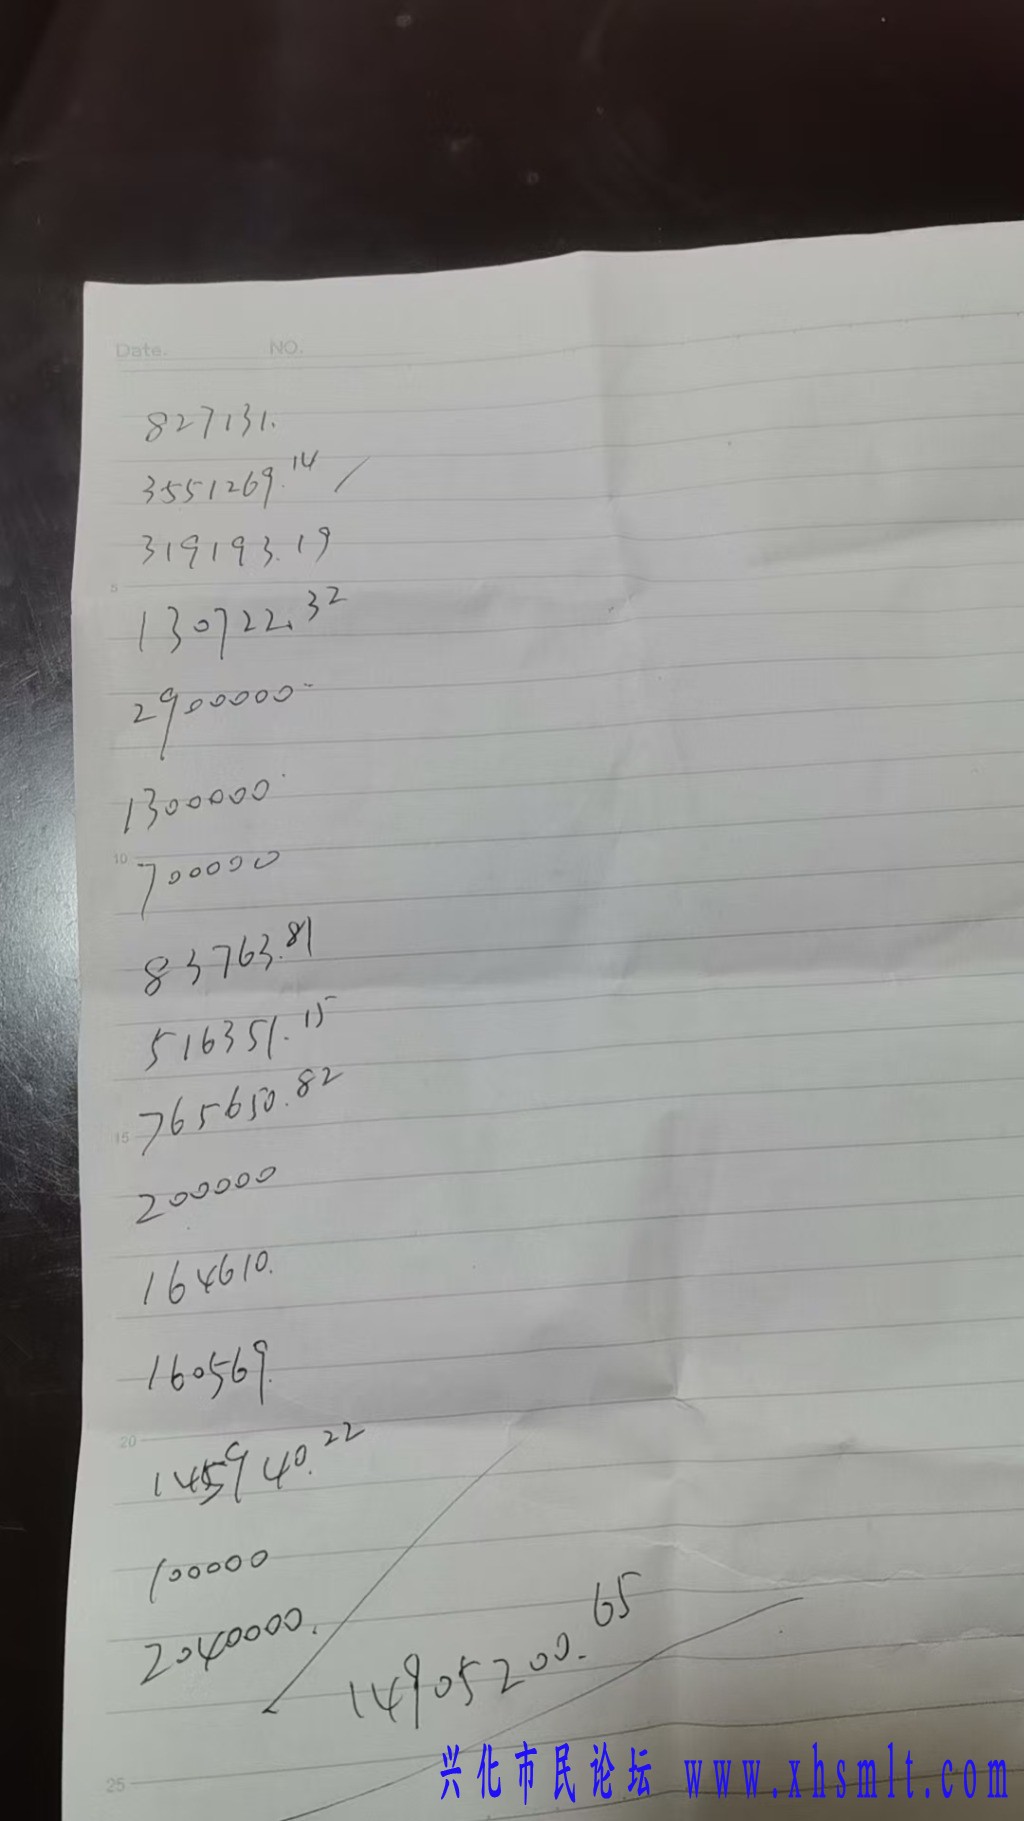 Date. NO.
827131.
3551269.14 /
319193.19
5
130722.32
2900000.-
1300000.
10
700000
83763.81
516351.15
15
765650.82
200000
164610.
160569.
20
145940.22
100000
2040000.
14905200.65
25
兴化市民论坛 www.xhsmlt.com